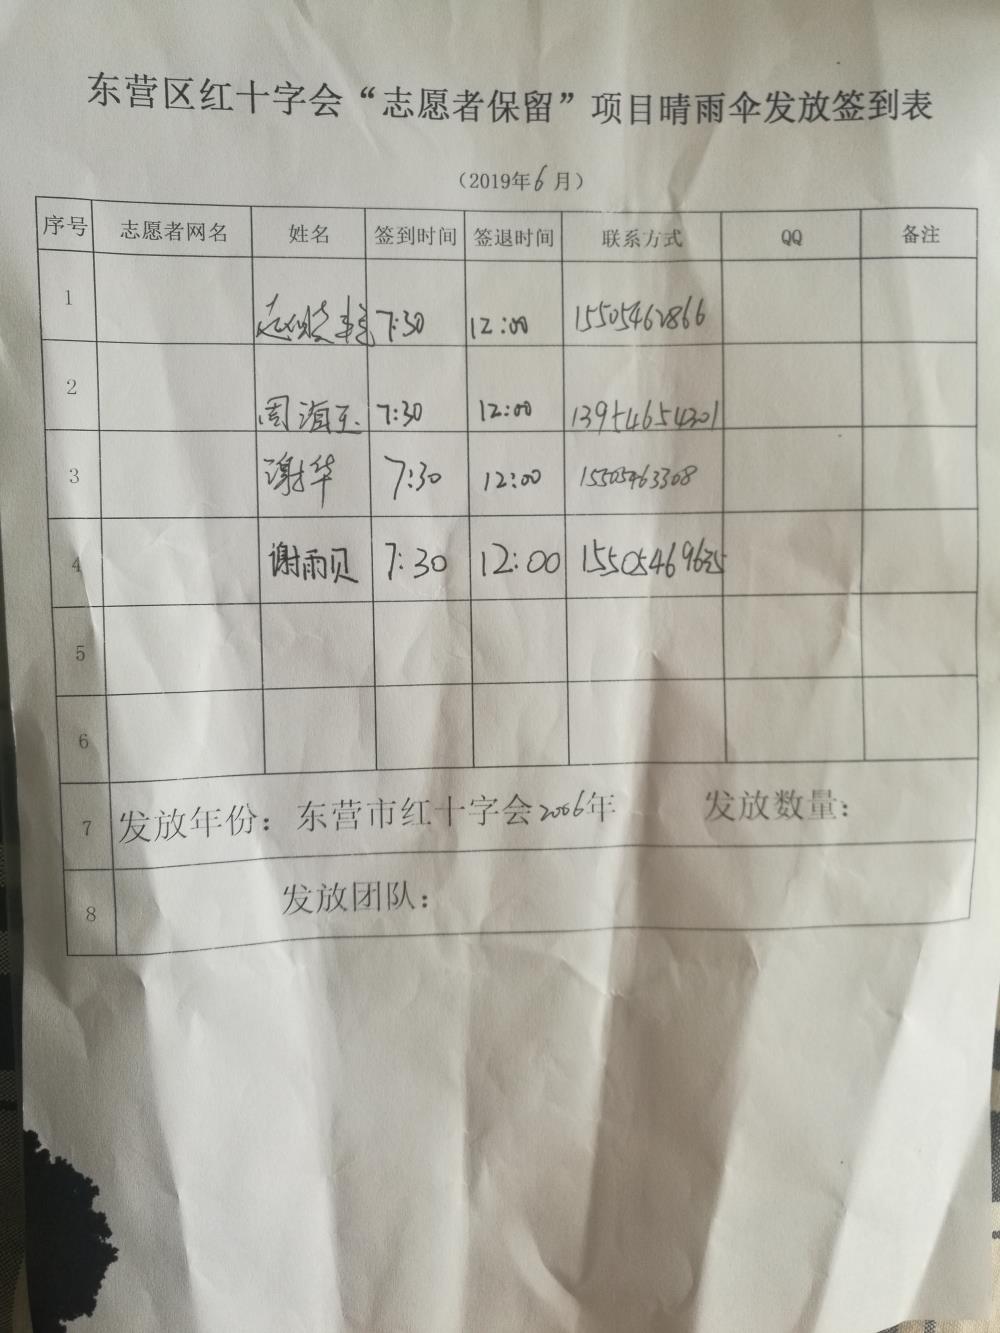 东营区红十字会“志愿者保留”项目晴雨伞发放签到表
（2019年6月）
序号 志愿者网名 姓名 签到时间 签退时间 联系方式 QQ 备注
1 7:30 12:00 15505462866
2 周海玉 7:30 12:00 13954654301
3 谢华 7:30 12:00 15505463308
4 谢雨贝 7:30 12:00 15505469635
5
6
7 发放年份：东营市红十字会2006年 发放数量：
8 发放团队：